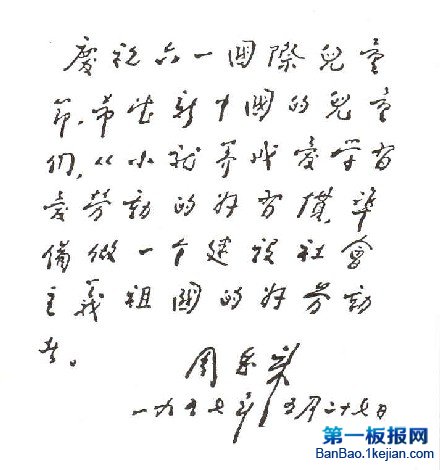 慶祝六一國際兒童
節，希望新中國的兒童
們，从小就养成愛学習
愛劳動的好習慣，準
備做一个建設社會
主義祖國的好劳動
者。
周恩来
一九五七年五月二十七日
第一板报网
BanBao.1kejian.com